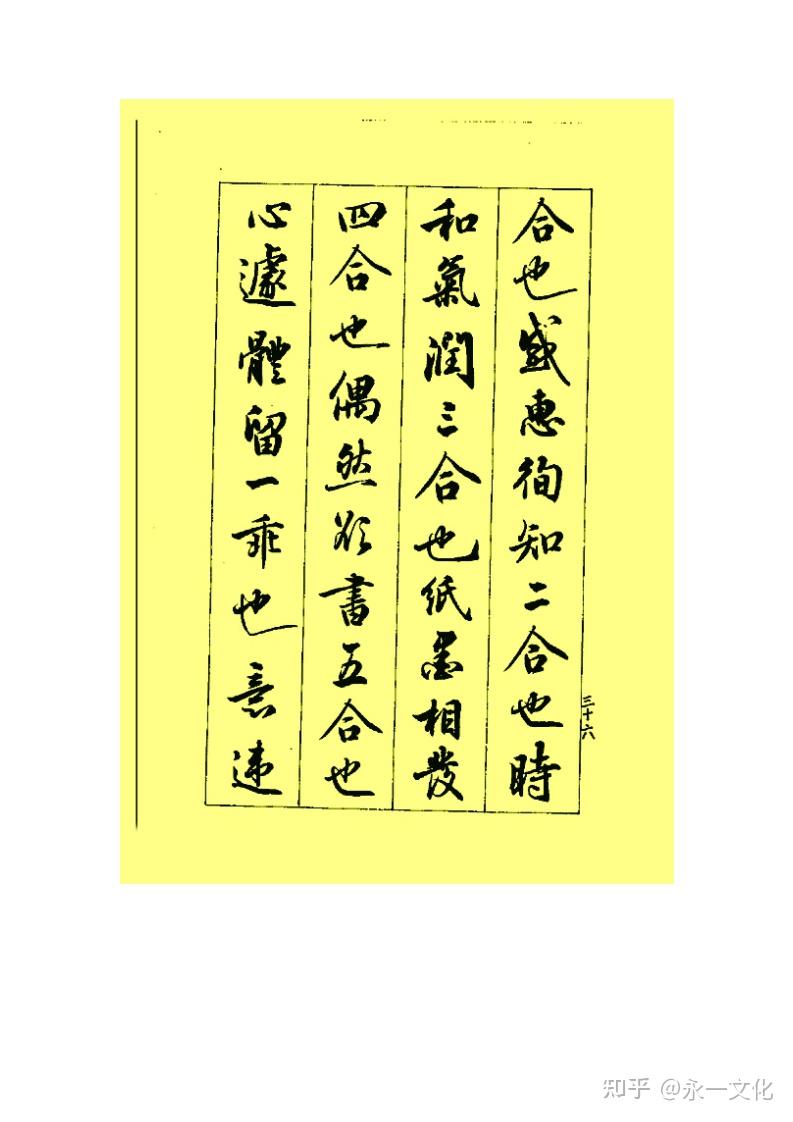 合也感惠徇知二合也時
和氣潤三合也紙墨相發
四合也偶然欲書五合也
心遽體留一乖也意違
三十六
知乎 @永一文化